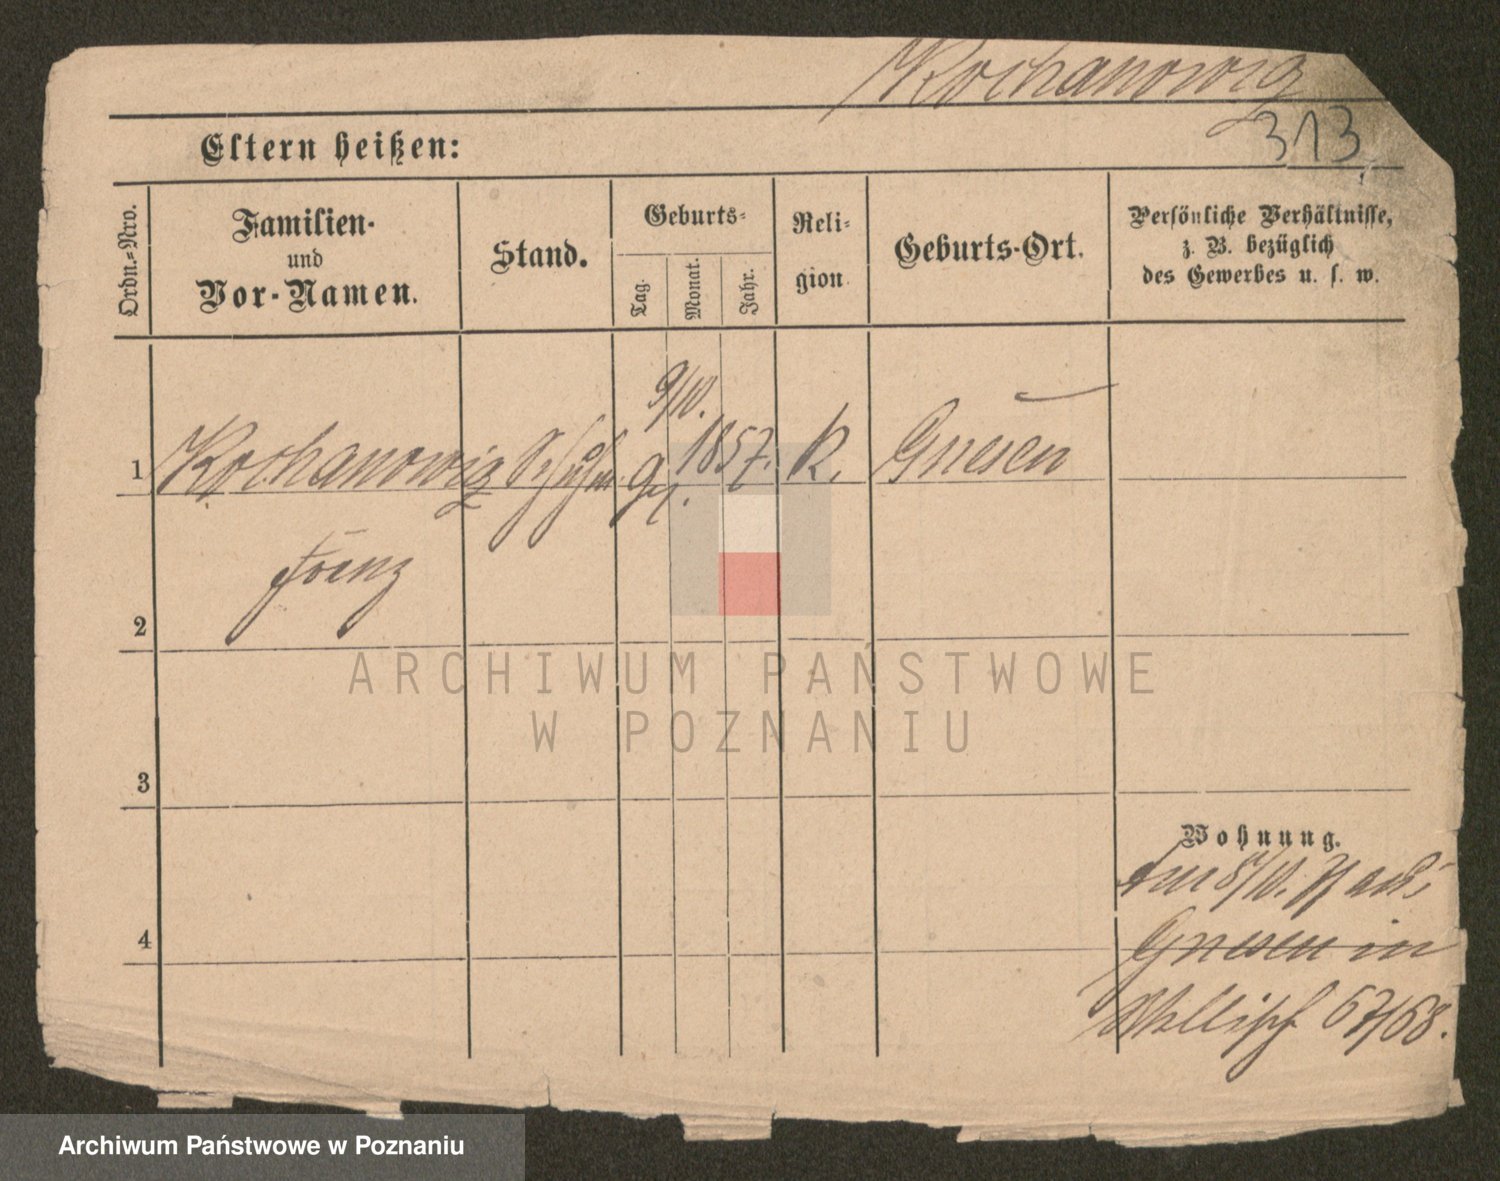 Kochanowicz
313
Eltern heißen:
Ordn.-Nro.
Familien-
und
Vor-Namen.
Stand.
Geburts-
Tag.
Monat.
Jahr.
Reli-
gion
Geburts-Ort.
Persönliche Verhältnisse,
z. B. bezüglich
des Gewerbes u. s. w.
9/10.
1 Kochanowicz Schuhm. 1857. K. Gnesen
Franz
2
ARCHIWUM PAŃSTWOWE
W POZNANIU
3
Wohnung.
aus
4 Gnesen in
Wallisch 67/68.
Archiwum Państwowe w Poznaniu